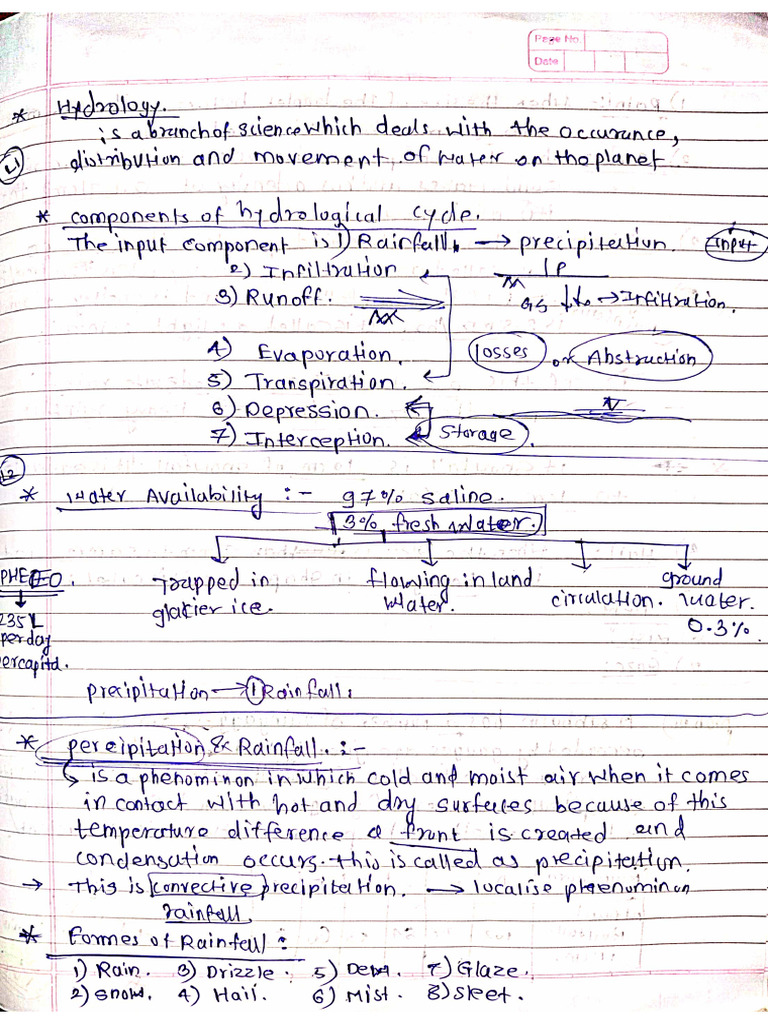 Page No.
Date
* Hydrology.
is a branch of science which deals with the occurance,
L1
distribution and movement of water on the planet
* components of hydrological cycle.
The input component is 1) Rainfall. → precipitation. Input
2) Infiltration
3) Runoff. → Infiltration.
4) Evaporation. losses or Abstruction
5) Transpiration.
6) Depression.
7) Interception. Storage.
L2
* Water Availability :- 97% saline.
3% fresh water.
Trapped in glacier ice.
flowing in land water.
circulation.
ground water. 0.3%.
235 L
per day
percapita.
precipitation → 1) Rainfall.
* percipitation & Rainfall. :-
is a phenominon in which cold and moist air when it comes
in contact with hot and dry surfaces because of this
temperature difference a frunt is created and
condensation occurs. this is called as precipitation.
→ This is convective precipitation. → localise phaenominon
rainfall.
* Formes of Rainfall :
1) Rain. 3) Drizzle. 5) Dew. 7) Glaze.
2) snow. 4) Hail. 6) Mist. 8) Sleet.